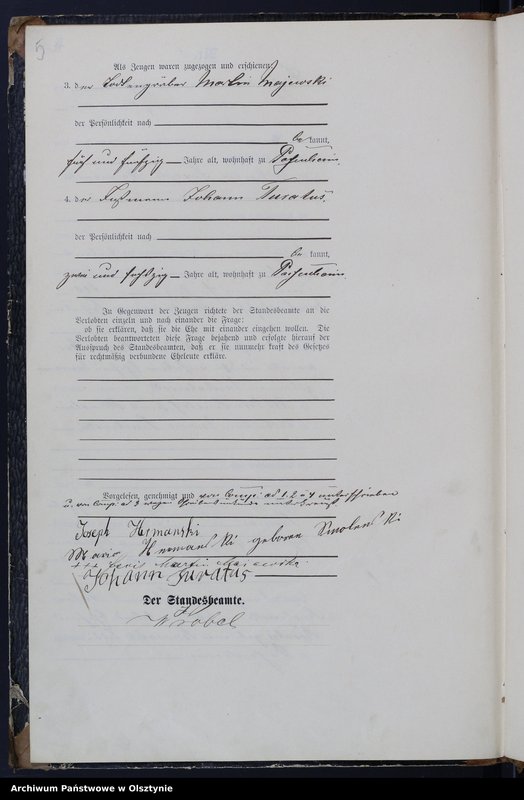 Als Zeugen waren zugezogen und erschienen:
3. der Todtengräber Martin Majewski
der Persönlichkeit nach
be kannt,
fünf und fünfzig Jahre alt, wohnhaft zu
4. der Johann Turatus,
der Persönlichkeit nach
be kannt,
zwei und fünfzig Jahre alt, wohnhaft zu
In Gegenwart der Zeugen richtete der Standesbeamte an die
Verlobten einzeln und nach einander die Frage:
ob sie erklären, daß sie die Ehe mit einander eingehen wollen. Die
Verlobten beantworteten diese Frage bejahend und erfolgte hierauf der
Ausspruch des Standesbeamten, daß er sie nunmehr kraft des Gesetzes
für rechtmäßig verbundene Eheleute erkläre.
Vorgelesen, genehmigt und von Comp: ad 1, 2 u 4 unterschrieben
u. von Comp. ad 3 wegen unterkreuzt
Joseph
geborene Smolenski
+++ Martin Majewski.
Johann Turatus
Der Standesbeamte.
Wrobel
Archiwum Państwowe w Olsztynie